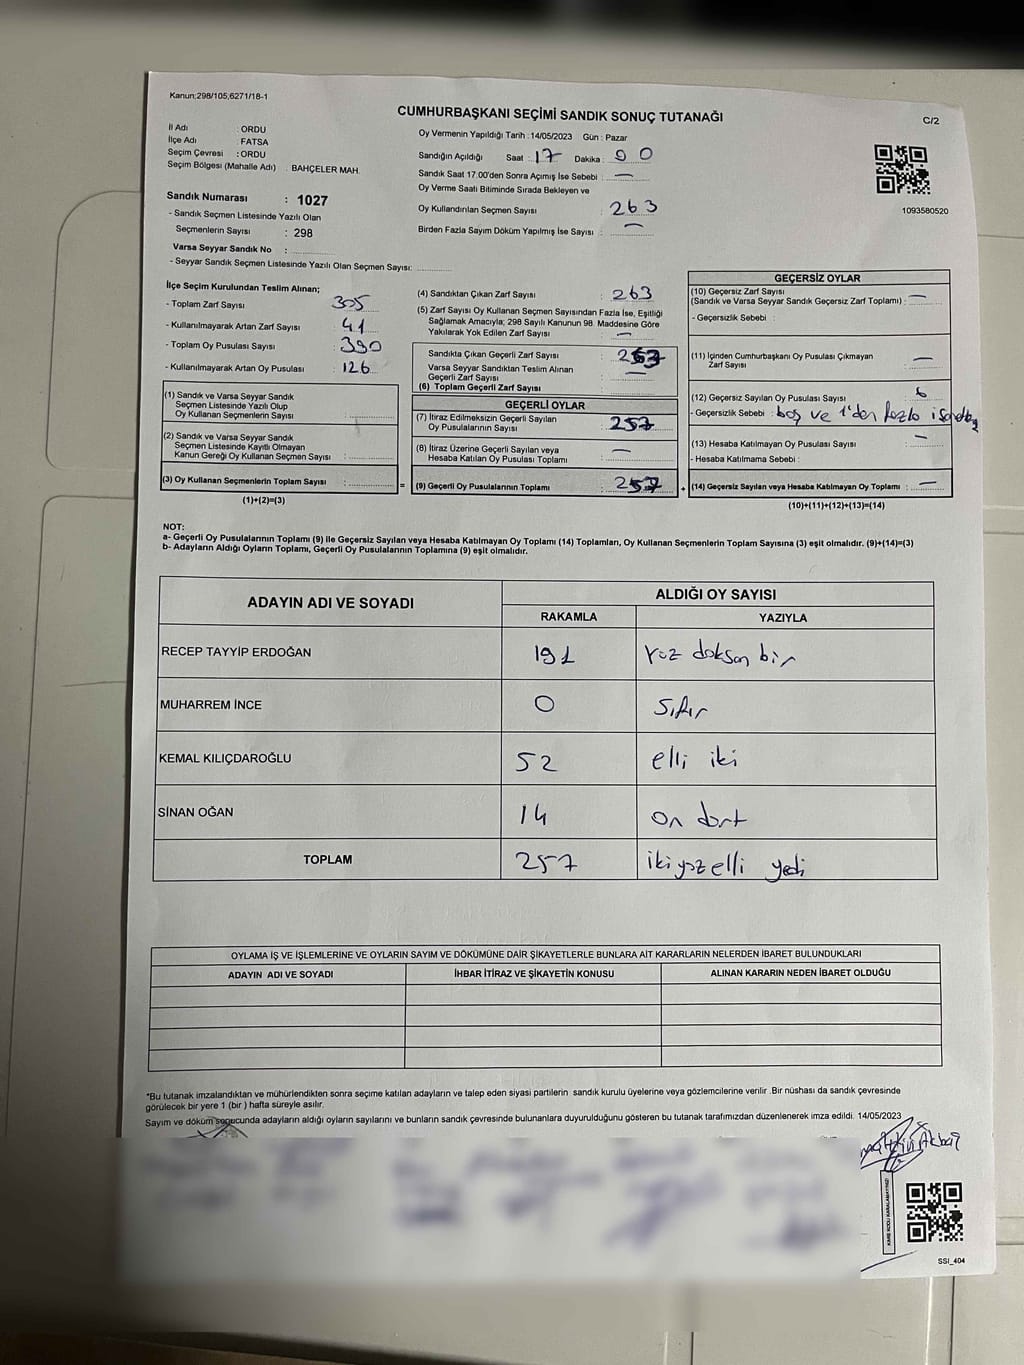 Kanun;298/105,6271/18-1
CUMHURBAŞKANI SEÇİMİ SANDIK SONUÇ TUTANAĞI
C/2
İl Adı : ORDU
İlçe Adı : FATSA
Seçim Çevresi : ORDU
Seçim Bölgesi (Mahalle Adı) : BAHÇELER MAH.
Sandık Numarası : 1027
- Sandık Seçmen Listesinde Yazılı Olan
Seçmenlerin Sayısı : 298
Varsa Seyyar Sandık No :
- Seyyar Sandık Seçmen Listesinde Yazılı Olan Seçmen Sayısı:
Oy Vermenin Yapıldığı Tarih : 14/05/2023 Gün : Pazar
Sandığın Açıldığı Saat : 17 Dakika : 00
Sandık Saat 17.00'den Sonra Açımış İse Sebebi : —
Oy Verme Saati Bitiminde Sırada Bekleyen ve
Oy Kullandırılan Seçmen Sayısı : 263
Birden Fazla Sayım Döküm Yapılmış İse Sayısı : —
1093580520
İlçe Seçim Kurulundan Teslim Alınan;
- Toplam Zarf Sayısı : 305
- Kullanılmayarak Artan Zarf Sayısı : 41
- Toplam Oy Pusulası Sayısı : 390
- Kullanılmayarak Artan Oy Pusulası : 126
(1) Sandık ve Varsa Seyyar Sandık
Seçmen Listesinde Yazılı Olup
Oy Kullanan Seçmenlerin Sayısı :
(2) Sandık ve Varsa Seyyar Sandık
Seçmen Listesinde Kayıtlı Olmayan
Kanun Gereği Oy Kullanan Seçmen Sayısı :
(3) Oy Kullanan Seçmenlerin Toplam Sayısı :
(1)+(2)=(3)
(4) Sandıktan Çıkan Zarf Sayısı : 263
(5) Zarf Sayısı Oy Kullanan Seçmen Sayısından Fazla İse, Eşitliği
Sağlamak Amacıyla; 298 Sayılı Kanunun 98. Maddesine Göre
Yakılarak Yok Edilen Zarf Sayısı : —
Sandıkta Çıkan Geçerli Zarf Sayısı : 263
Varsa Seyyar Sandıktan Teslim Alınan
Geçerli Zarf Sayısı : —
(6) Toplam Geçerli Zarf Sayısı :
GEÇERLİ OYLAR
(7) İtiraz Edilmeksizin Geçerli Sayılan
Oy Pusulalarının Sayısı : 257
(8) İtiraz Üzerine Geçerli Sayılan veya
Hesaba Katılan Oy Pusulası Toplamı : —
= (9) Geçerli Oy Pusulalarının Toplamı : 257 +
GEÇERSİZ OYLAR
(10) Geçersiz Zarf Sayısı
(Sandık ve Varsa Seyyar Sandık Geçersiz Zarf Toplamı) : —
- Geçersizlik Sebebi :
(11) İçinden Cumhurbaşkanı Oy Pusulası Çıkmayan
Zarf Sayısı : —
(12) Geçersiz Sayılan Oy Pusulası Sayısı : 6
- Geçersizlik Sebebi : boş ve 1'den fazla
(13) Hesaba Katılmayan Oy Pusulası Sayısı : —
- Hesaba Katılmama Sebebi :
(14) Geçersiz Sayılan veya Hesaba Katılmayan Oy Toplamı : —
(10)+(11)+(12)+(13)=(14)
NOT:
a- Geçerli Oy Pusulalarının Toplamı (9) ile Geçersiz Sayılan veya Hesaba Katılmayan Oy Toplamı (14) Toplamları, Oy Kullanan Seçmenlerin Toplam Sayısına (3) eşit olmalıdır. (9)+(14)=(3)
b- Adayların Aldığı Oyların Toplamı, Geçerli Oy Pusulalarının Toplamına (9) eşit olmalıdır.
ADAYIN ADI VE SOYADI
ALDIĞI OY SAYISI
RAKAMLA YAZIYLA
RECEP TAYYİP ERDOĞAN 191 Yüz doksan bir
MUHARREM İNCE 0 Sıfır
KEMAL KILIÇDAROĞLU 52 elli iki
SİNAN OĞAN 14 on dort
TOPLAM 257 iki yüz elli yedi
OYLAMA İŞ VE İŞLEMLERİNE VE OYLARIN SAYIM VE DÖKÜMÜNE DAİR ŞİKAYETLERLE BUNLARA AİT KARARLARIN NELERDEN İBARET BULUNDUKLARI
ADAYIN ADI VE SOYADI İHBAR İTİRAZ VE ŞİKAYETİN KONUSU ALINAN KARARIN NEDEN İBARET OLDUĞU
*Bu tutanak imzalandıktan ve mühürlendikten sonra seçime katılan adayların ve talep eden siyasi partilerin sandık kurulu üyelerine veya gözlemcilerine verilir .Bir nüshası da sandık çevresinde
görülecek bir yere 1 (bir ) hafta süreyle asılır.
Sayım ve döküm sonucunda adayların aldığı oyların sayılarını ve bunların sandık çevresinde bulunanlara duyurulduğunu gösteren bu tutanak tarafımızdan düzenlenerek imza edildi. 14/05/2023
SSİ_404